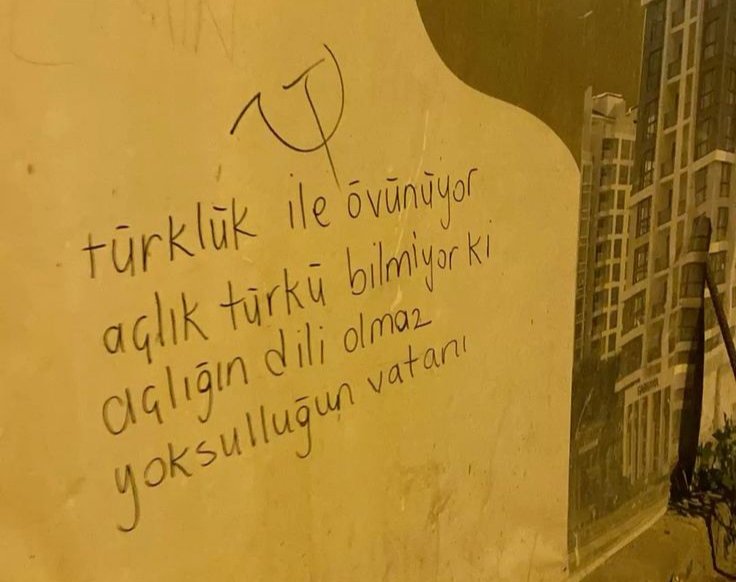 türklük ile övünüyor
açlık türkü bilmiyor ki
açlığın dili olmaz
yoksulluğun vatanı